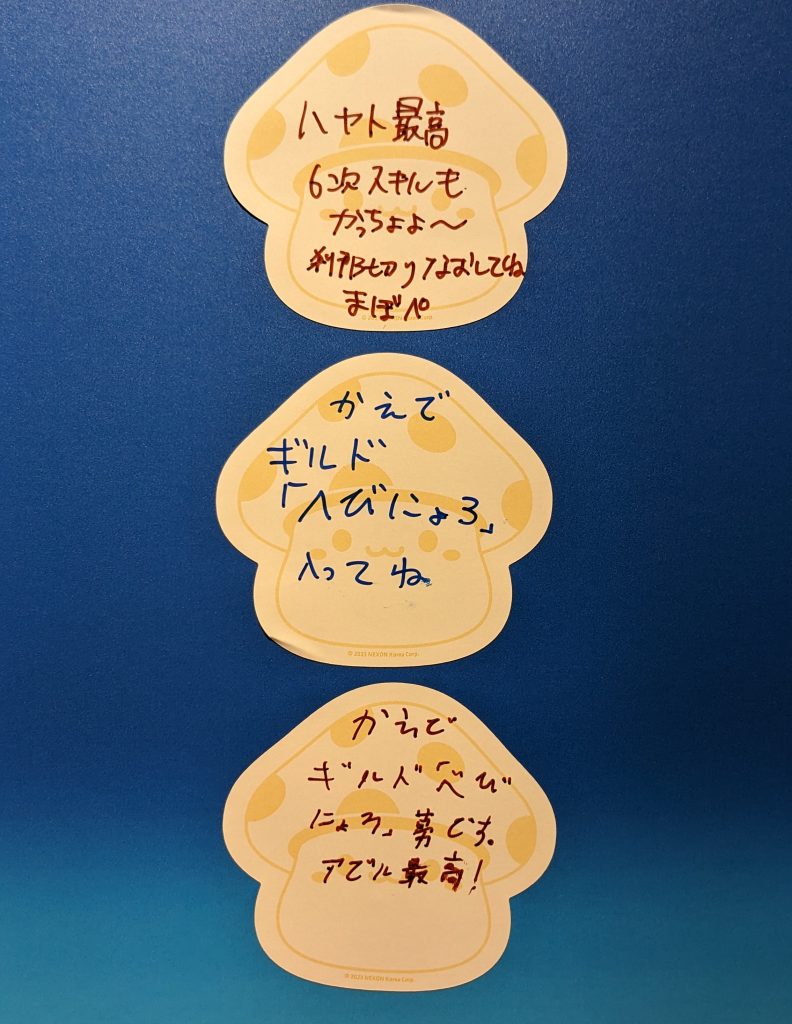 ハヤト最高
6次スキルも
かっちょよ〜
刹那切りなおしてね
まぼぺ
かえで
ギルド
「へびにょろ」
入ってね
© 2023 NEXON Korea Corp.
かえで
ギルド「へび
にょろ」募です。
アデル最高!
© 2023 NEXON Korea Corp.